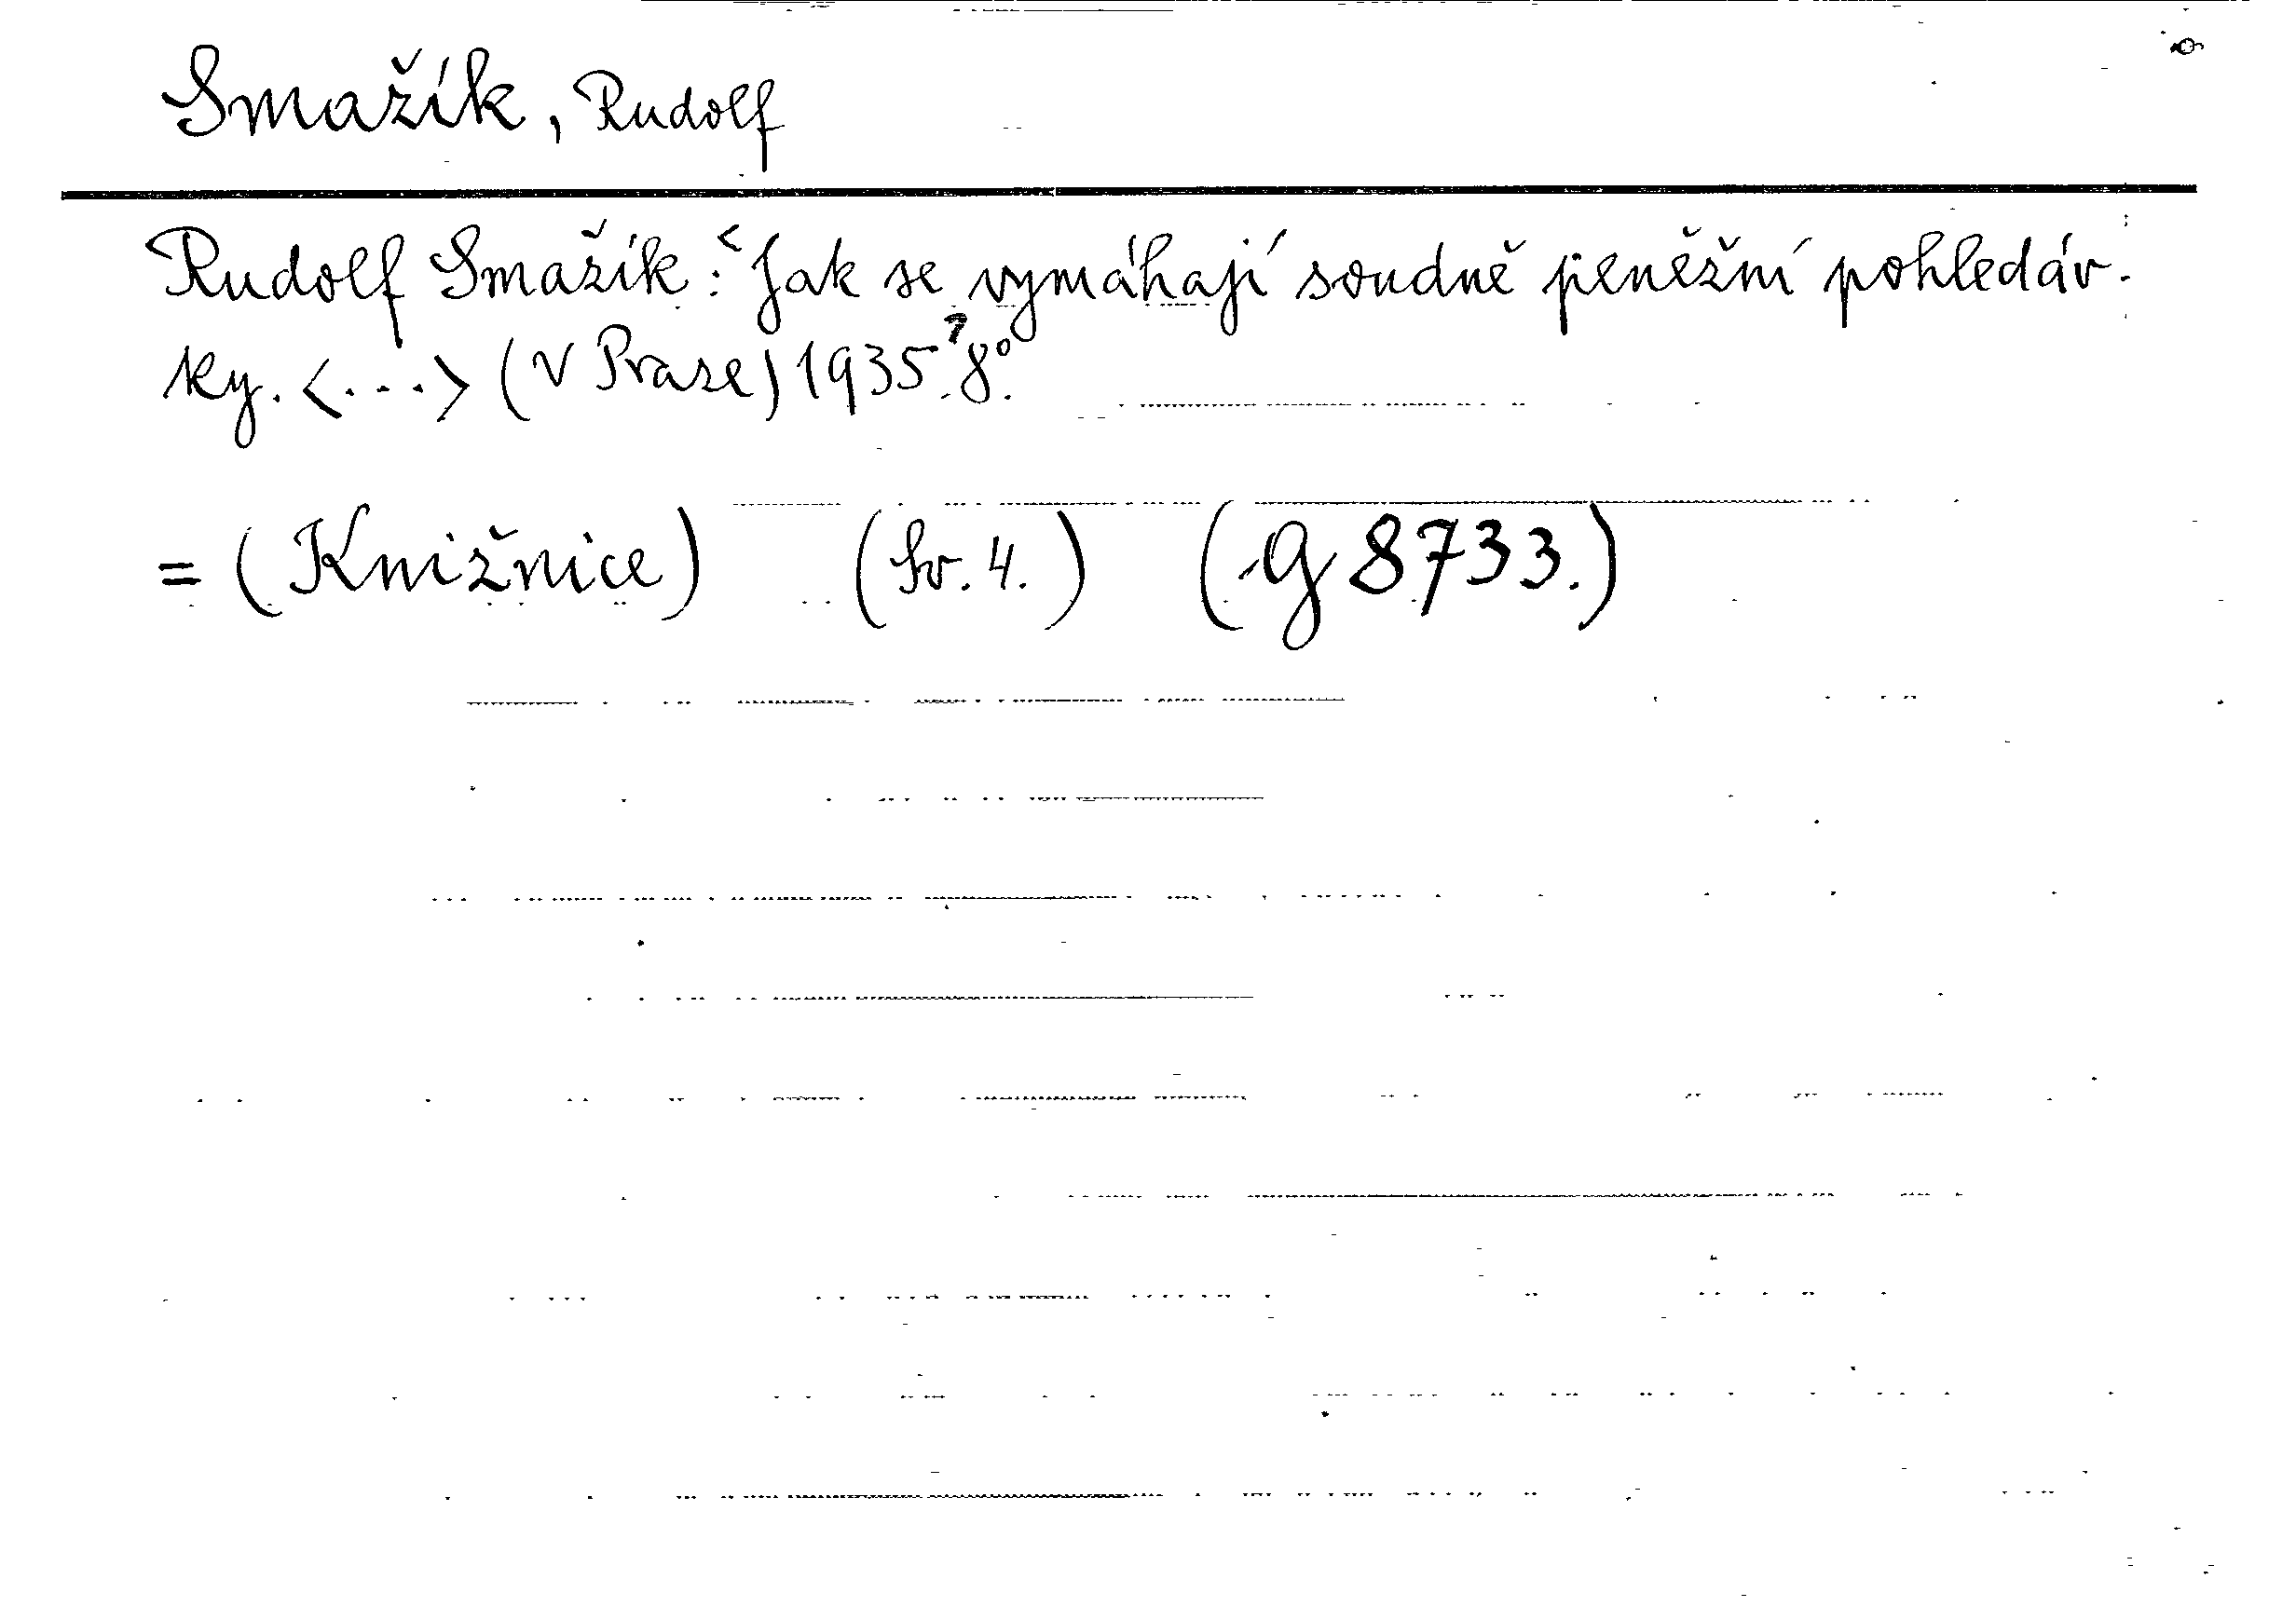 Smažík, Rudolf
Rudolf Smažík: <Jak se vymáhají soudně peněžní pohledáv-
ky. <...> (V Praze) 1935.> 8°.
= (Knižnice) (Sv. 4.) (G 8733.)